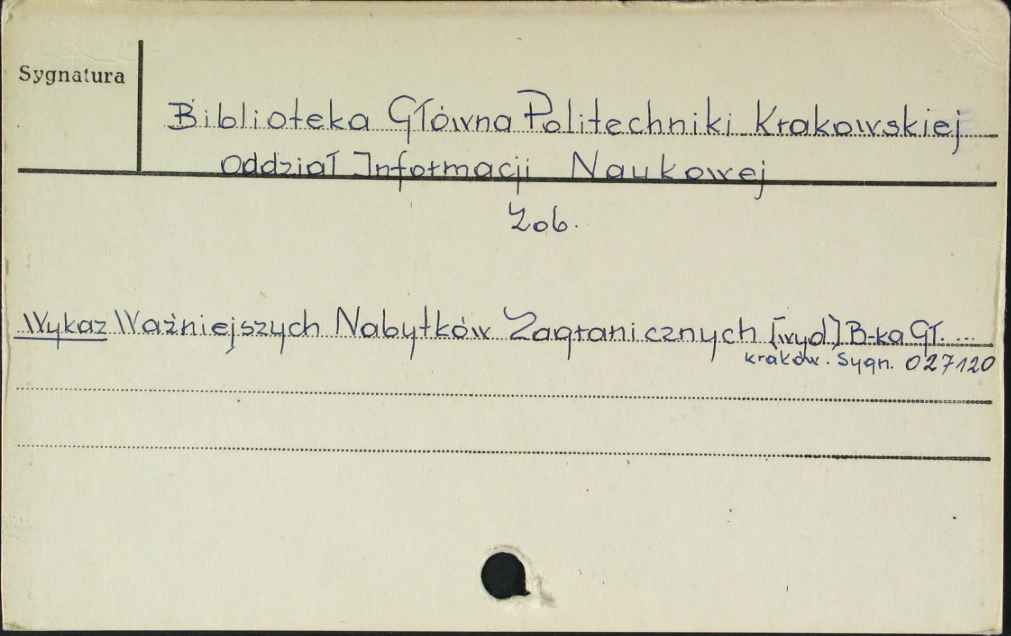 Sygnatura
Biblioteka Główna Politechniki Krakowskiej
Oddział Informacji Naukowej
Zob.
Wykaz Ważniejszych Nabytków Zagranicznych [wyd] B-ka Gł. ...
Kraków. Sygn. 027120